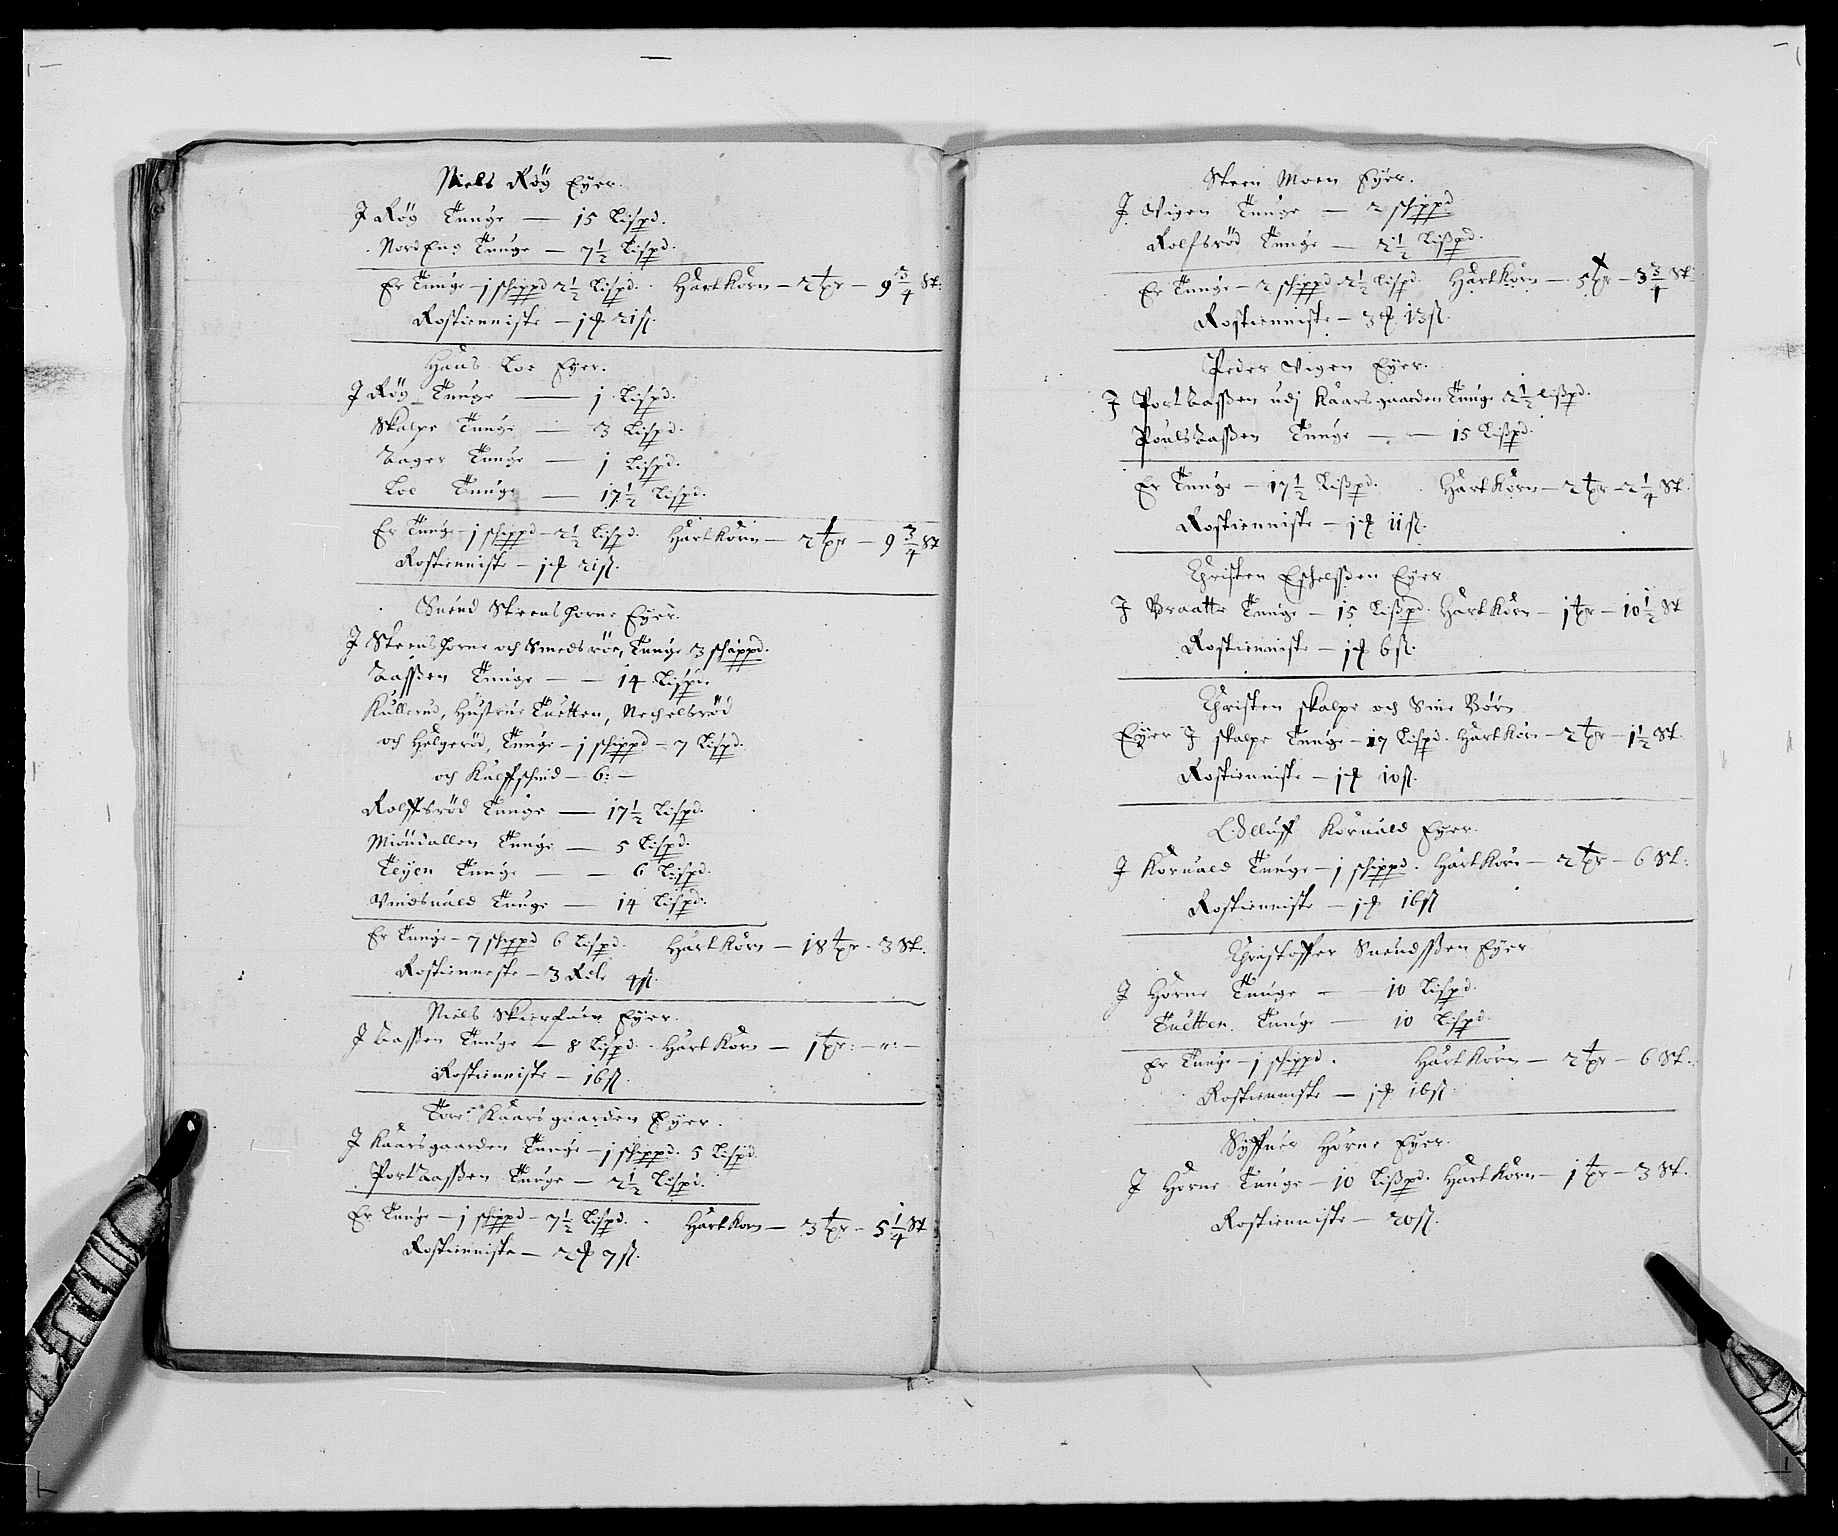 Niels Röÿ Eÿer.
J Röÿ Tunge — 15 Lispd.
Nord Eng Tunge — 7½ Lispd.
Er Tunge – j schippd 2½ Lispd. Hart Korn – 2 tr – 9 3/4 St:
Rostienniste – j 21 ß.
Hans Loe Eÿer.
J Röÿ Tunge — j Lispd.
Skalpe Tunge — 3 Lispd.
Bager Tunge — j Lispd.
Loe Tunge — 17½ Lispd.
Er Tunge – j schippd – 2½ Lispd. Hart Korn – 2 tr – 9 3/4 St
Rostienniste – j 21 ß.
Suend Steenshorne Eÿer.
J Steenshorne och Smedsröe, Tunge 3 schippd.
Bassen Tunge — 14 Lispd.
Kullerud, Hustrue Tuetten, Nechelsröd
och Helgeröd, Tunge – j schippd – 7 Lispd.
och Kalffschind – 6: –
Rolffsröd Tunge — 17½ Lispd.
Miöndallen Tunge — 5 Lispd.
Teÿen Tunge — 6 Lispd.
Vindsuald Tunge — 14 Lispd.
Er Tunge – 7 schippd 6 Lispd. Hart Korn – 18 tr – 3 St.
Rostienneste – 3 4 ß.
Niels Skierfuer Eÿer.
J Bassen Tunge – 8 Lispd. Hart Korn – 1 tr: – „: –
Rostienniste – 16 ß.
Tore Kaarsgaarden Eÿer.
J Kaarsgaarden Tunge – j schippd. 5 Lispd
Portbassen Tunge – 2½ Lispd.
Er Tunge – j schippd – 7½ Lispd. Hart Korn – 3 tr – 5 1/4 St
Rostienniste – 2 7 ß.
Steen Moen Eÿer.
J Vigen Tunge – 2 schippd
Rolfsröd Tunge — 2½ Lispd.
Er Tunge – 2 schippd 2½ Lispd. Hart Korn – 5 tr – 3 3/4 St
Rostienniste – 3 13 ß.
Peder Vigen Eÿer.
J Portbassen udj Kaarsgaarden Tunge 2½ Lispd.
Poulsbassen Tunge — 15 Lispd.
Er Tunge – 17½ Lispd. Hart Korn – 2 tr – 2 1/4 St.
Rostienniste – j 11 ß.
Christen Eschelssen Eÿer
J Braatte Tunge – 15 Lispd. Hart Korn – 1 tr – 10½ St
Rostienniste – j 6 ß.
Christen skalpe och Sine Börn
Eÿer J skalpe Tunge – 17 Lispd. Hart Korn – 2 tr – 1½ St.
Rostienniste – j 10 ß.
Kornald Eÿer.
J Kornald Tunge – j schippd. Hart Korn – 2 tr – 6 St:
Rostienniste – j 16 ß
Christoffer Suendssen Eÿer
J Horne Tunge — 10 Lispd.
Tuetten Tunge — 10 Lispd.
Er Tunge – j schippd. Hart Korn – 2 tr – 6 St.
Rostienniste – j 16 ß.
Syffuer Horne Eÿer.
J Horne Tunge – 10 Lispd. Hart Korn – 1 tr – 3 St.
Rostienniste – 20 ß.